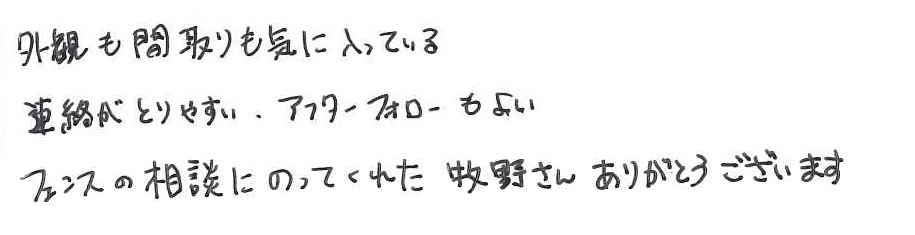 外観も間取りも気に入っている
連絡がとりやすい、アフターフォローもよい
フェンスの相談にのってくれた 牧野さん ありがとうございます